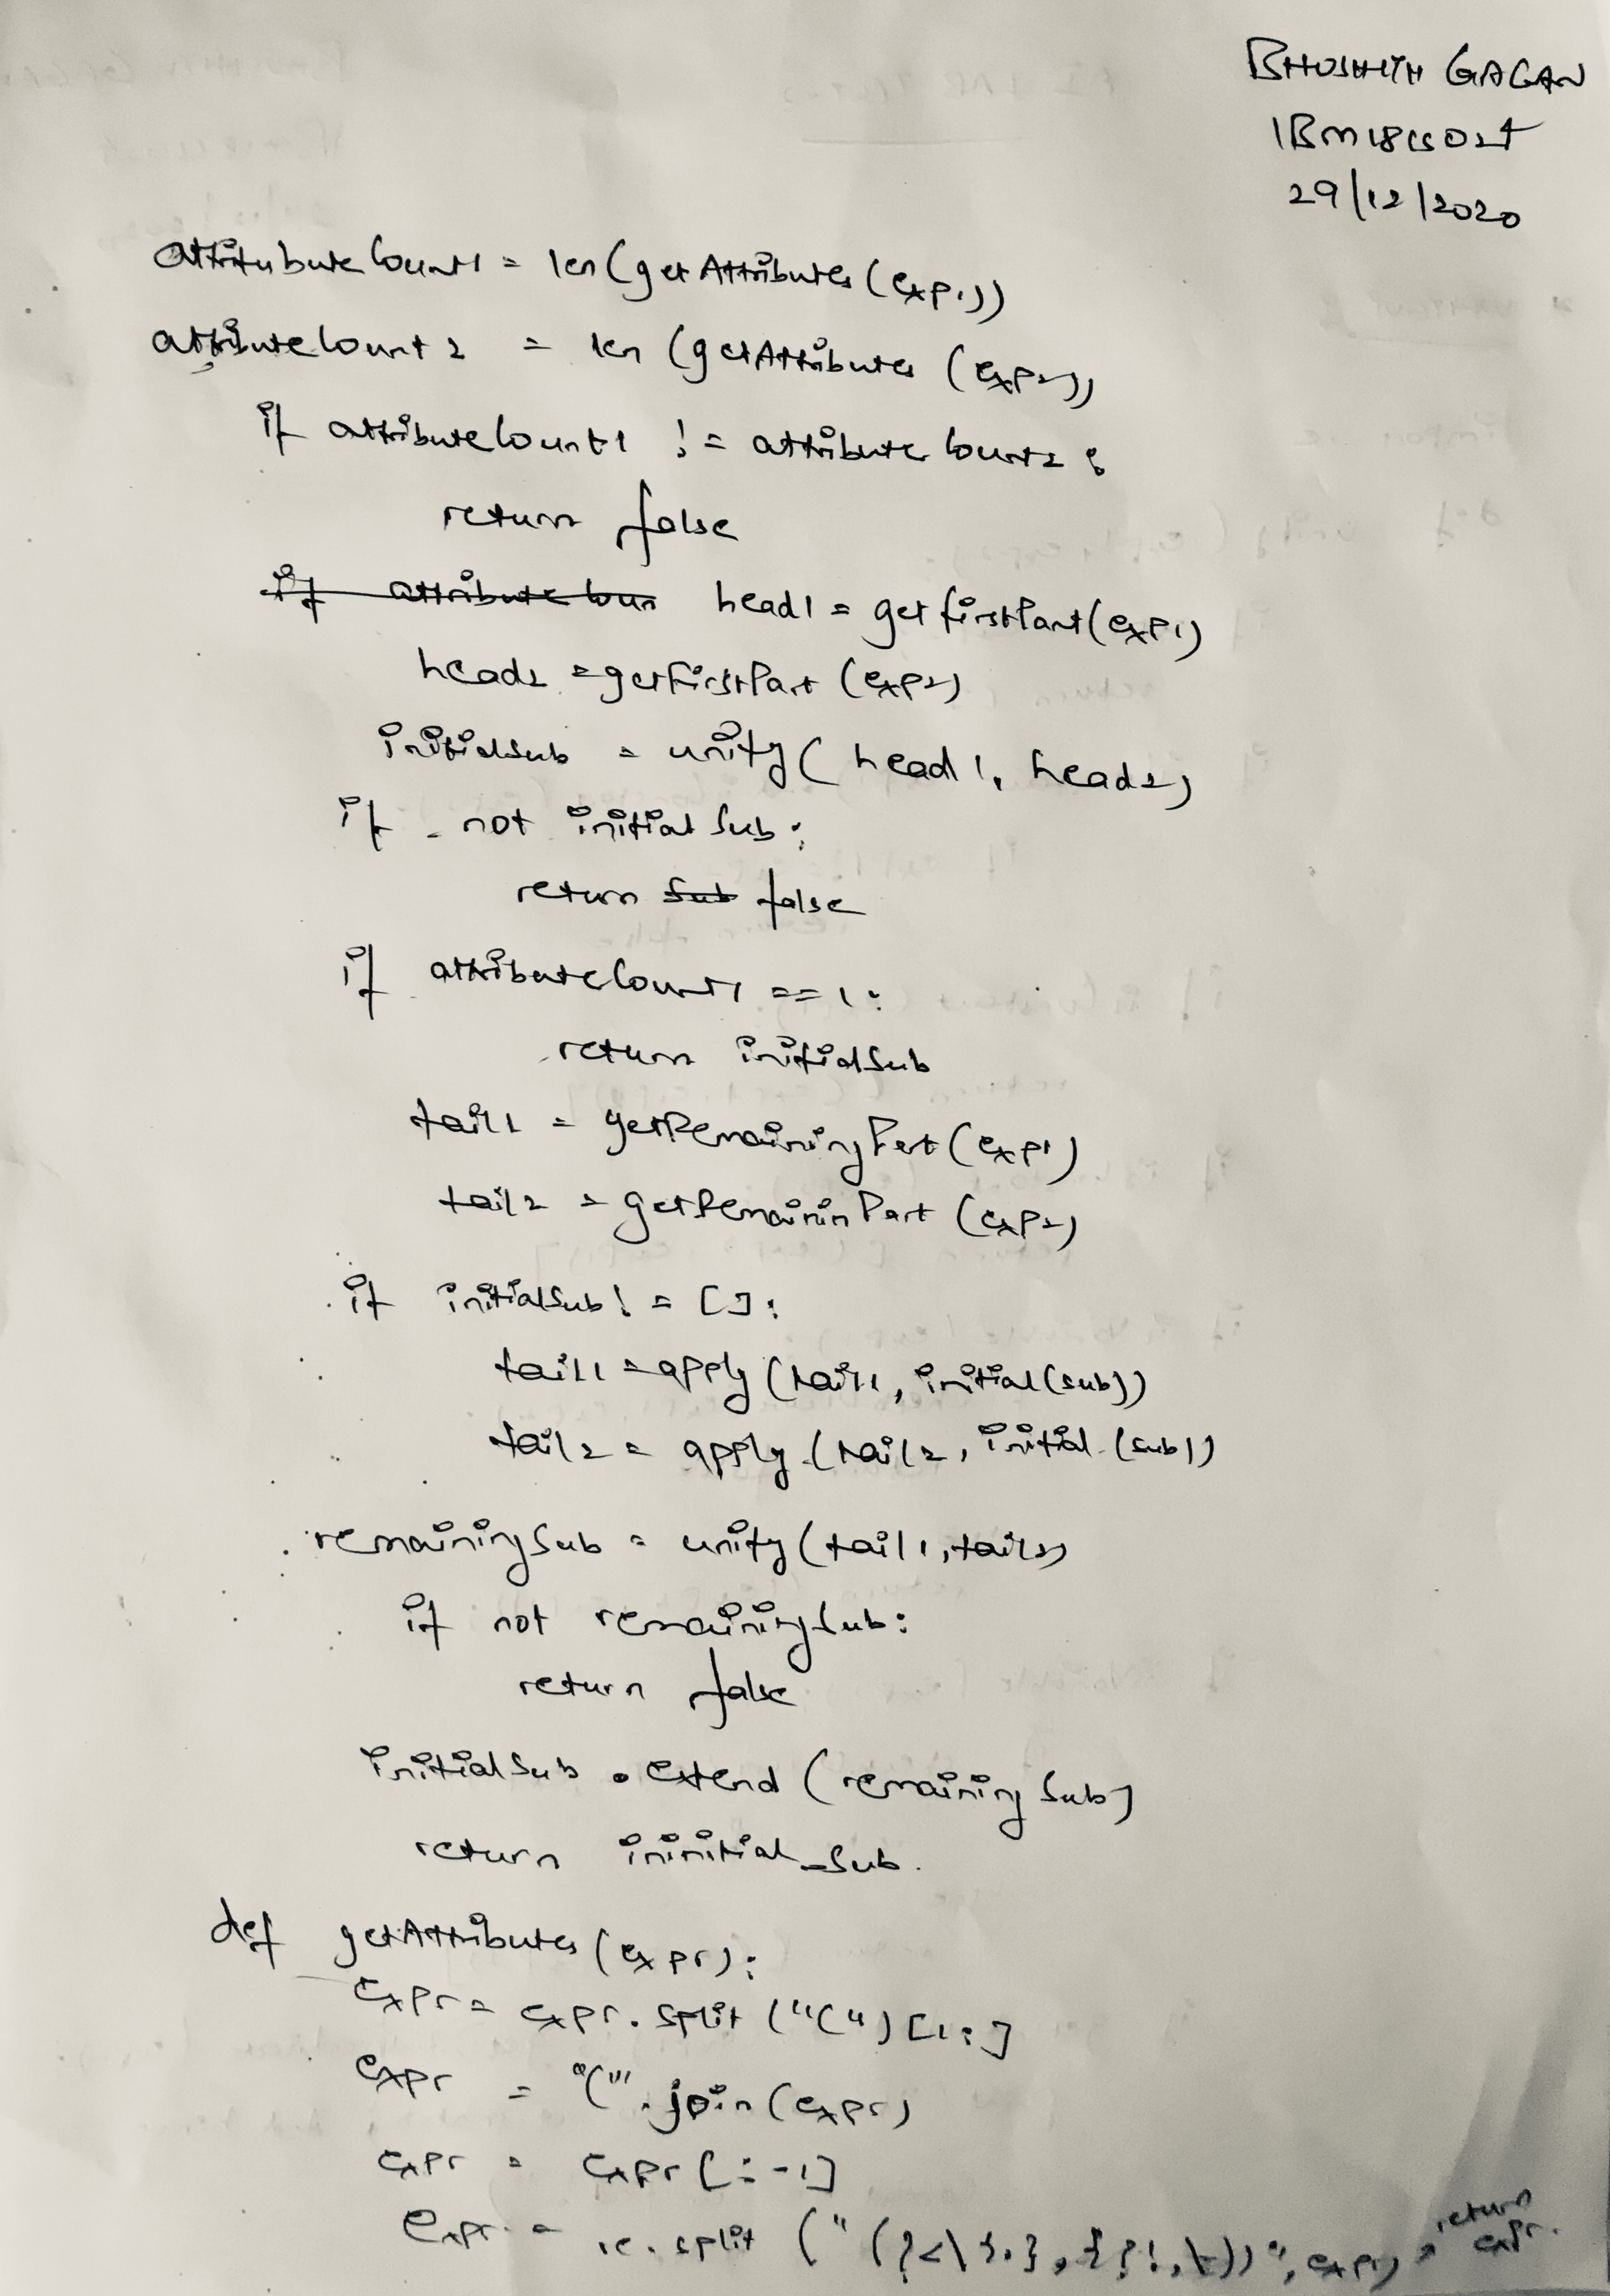 BHUSHITH GAGAN
1BM18CS027
29/12/2020
attritubuteCount1 = len(getAttributes(exp1))
attributeCount2 = len (getAttributes (exp2))
if attributeCount1 != attributeCount2 :
return false
if attribute Coun head1 = getfirstPart(exp1)
head2 = getFirstPart (exp2)
initialSub = unity( head1, head2)
if not initialSub :
return Sub false
if attributeCount1 == 1 :
return initialSub
tail1 = getRemainingPart(exp1)
tail2 = getRemaininPart (exp2)
if initialSub != [] :
tail1 = apply (tail1, initial(sub))
tail2 = apply (tail2, initial (sub))
remainingSub = unity(tail1, tail2)
if not remainingSub:
return false
initialSub . extend (remainingSub)
return ininitial_Sub.
def getAttributes (expr):
expr = expr.split ("(") [1:]
expr = "(".join(expr)
expr = expr[:-1]
expr = re.split (" expr) return
expr.